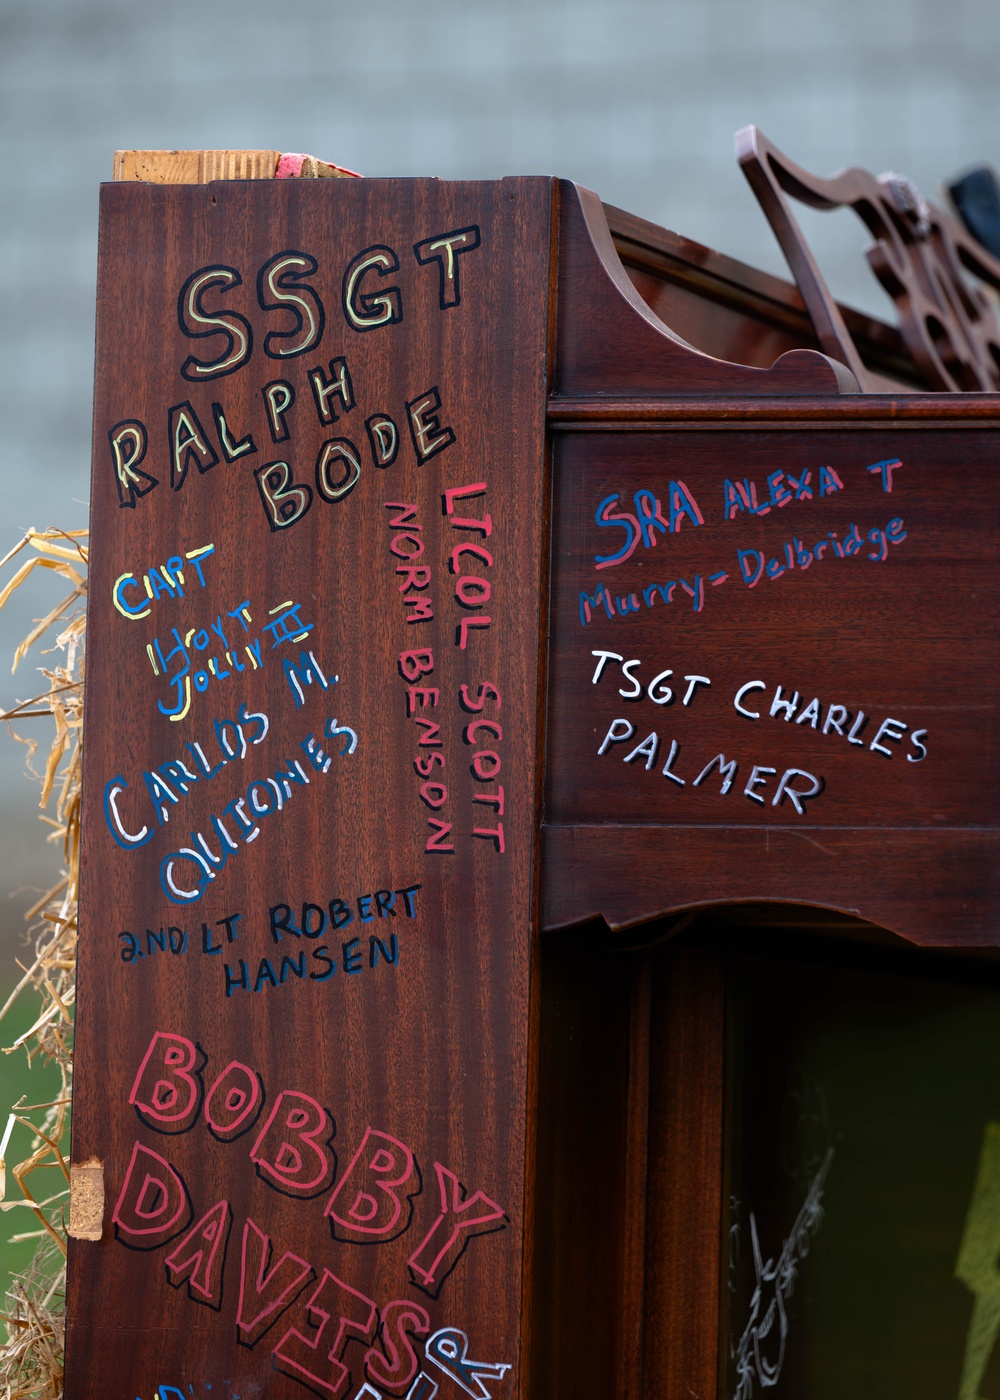 SSGT
RALPH
BODE
CAPT
HOYT
JOLLY III
CARLOS M.
QUIONES
LTCOL SCOTT
NORM BENSON
2.ND LT ROBERT
HANSEN
BOBBY
DAVIS
SRA ALEXA T
Murry-Delbridge
TSGT CHARLES
PALMER